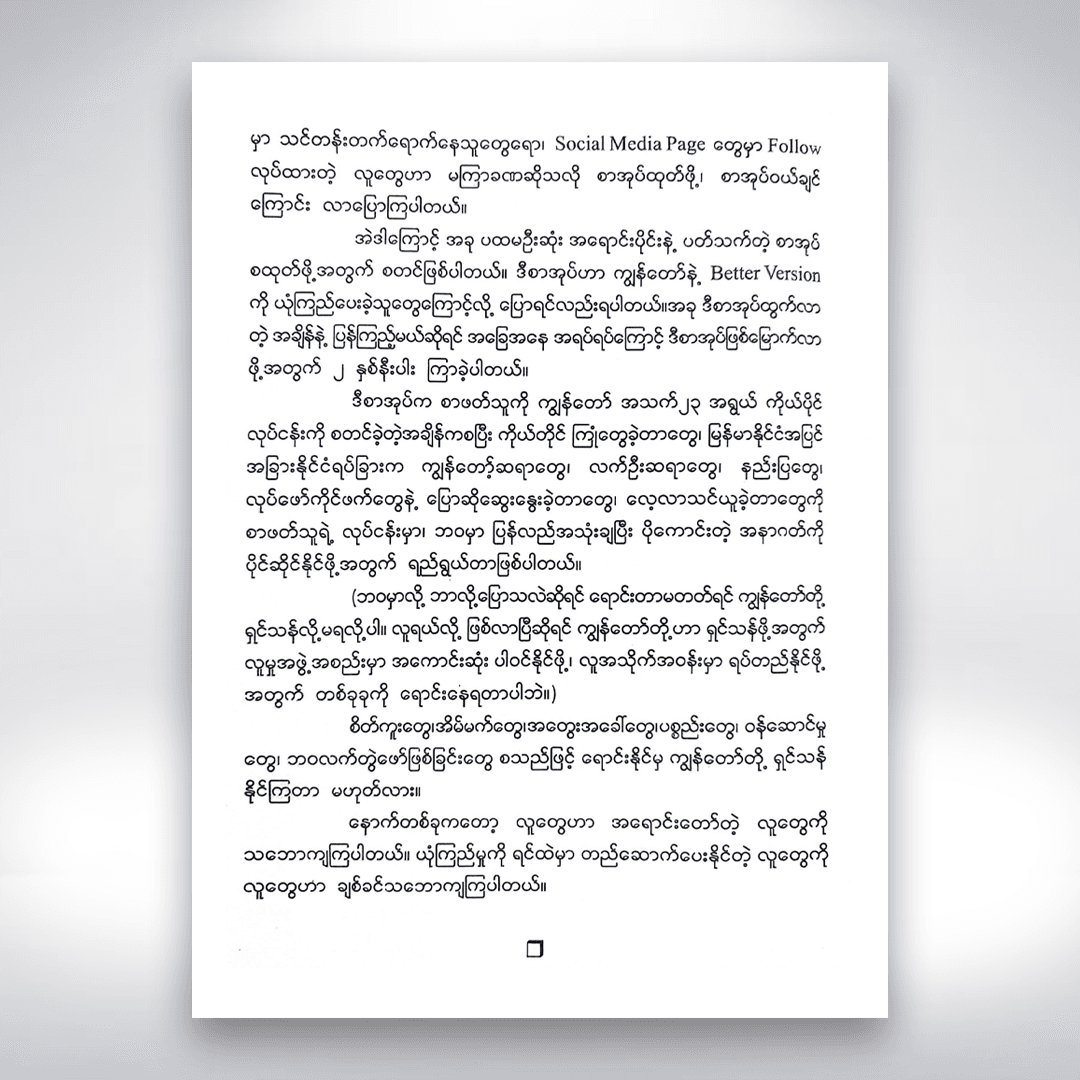 မှာ သင်တန်းတက်ရောက်နေသူတွေရော၊ Social Media Page တွေမှာ Follow
လုပ်ထားတဲ့ လူတွေဟာ မကြာခဏဆိုသလို စာအုပ်ထုတ်ဖို့၊ စာအုပ်ဝယ်ချင်
ကြောင်း လာပြောကြပါတယ်။
အဲဒါကြောင့် အခု ပထမဦးဆုံး အရောင်းပိုင်းနဲ့ ပတ်သက်တဲ့ စာအုပ်
စထုတ်ဖို့အတွက် စတင်ဖြစ်ပါတယ်။ ဒီစာအုပ်ဟာ ကျွန်တော်နဲ့ Better Version
ကို ယုံကြည်ပေးခဲ့သူတွေကြောင့်လို့ ပြောရင်လည်းရပါတယ်။အခု ဒီစာအုပ်ထွက်လာ
တဲ့ အချိန်နဲ့ ပြန်ကြည့်မယ်ဆိုရင် အခြေအနေ အရပ်ရပ်ကြောင့် ဒီစာအုပ်ဖြစ်မြောက်လာ
ဖို့အတွက် ၂ နှစ်နီးပါး ကြာခဲ့ပါတယ်။
ဒီစာအုပ်က စာဖတ်သူကို ကျွန်တော် အသက်၂၃ အရွယ် ကိုယ်ပိုင်
လုပ်ငန်းကို စတင်ခဲ့တဲ့အချိန်ကစပြီး ကိုယ်တိုင် ကြုံတွေ့ခဲ့တာတွေ၊ မြန်မာနိုင်ငံအပြင်
အခြားနိုင်ငံရပ်ခြားက ကျွန်တော့်ဆရာတွေ၊ လက်ဦးဆရာတွေ၊ နည်းပြတွေ၊
လုပ်ဖော်ကိုင်ဖက်တွေနဲ့ ပြောဆိုဆွေးနွေးခဲ့တာတွေ၊ လေ့လာသင်ယူခဲ့တာတွေကို
စာဖတ်သူရဲ့ လုပ်ငန်းမှာ၊ ဘဝမှာ ပြန်လည်အသုံးချပြီး ပိုကောင်းတဲ့ အနာဂတ်ကို
ပိုင်ဆိုင်နိုင်ဖို့အတွက် ရည်ရွယ်တာဖြစ်ပါတယ်။
(ဘဝမှာလို့ ဘာလို့ပြောသလဲဆိုရင် ရောင်းတာမတတ်ရင် ကျွန်တော်တို့
ရှင်သန်လို့မရလို့ပါ။ လူရယ်လို့ ဖြစ်လာပြီဆိုရင် ကျွန်တော်တို့ဟာ ရှင်သန်ဖို့အတွက်
လူမှုအဖွဲ့အစည်းမှာ အကောင်းဆုံး ပါဝင်နိုင်ဖို့၊ လူအသိုက်အဝန်းမှာ ရပ်တည်နိုင်ဖို့
အတွက် တစ်ခုခုကို ရောင်းနေရတာပါဘဲ။)
စိတ်ကူးတွေ၊အိမ်မက်တွေ၊အတွေးအခေါ်တွေ၊ပစ္စည်းတွေ၊ ဝန်ဆောင်မှု
တွေ၊ ဘဝလက်တွဲဖော်ဖြစ်ခြင်းတွေ စသည်ဖြင့် ရောင်းနိုင်မှ ကျွန်တော်တို့ ရှင်သန်
နိုင်ကြတာ မဟုတ်လား။
နောက်တစ်ခုကတော့ လူတွေဟာ အရောင်းတော်တဲ့ လူတွေကို
သဘောကျကြပါတယ်။ ယုံကြည်မှုကို ရင်ထဲမှာ တည်ဆောက်ပေးနိုင်တဲ့ လူတွေကို
လူတွေဟာ ချစ်ခင်သဘောကျကြပါတယ်။